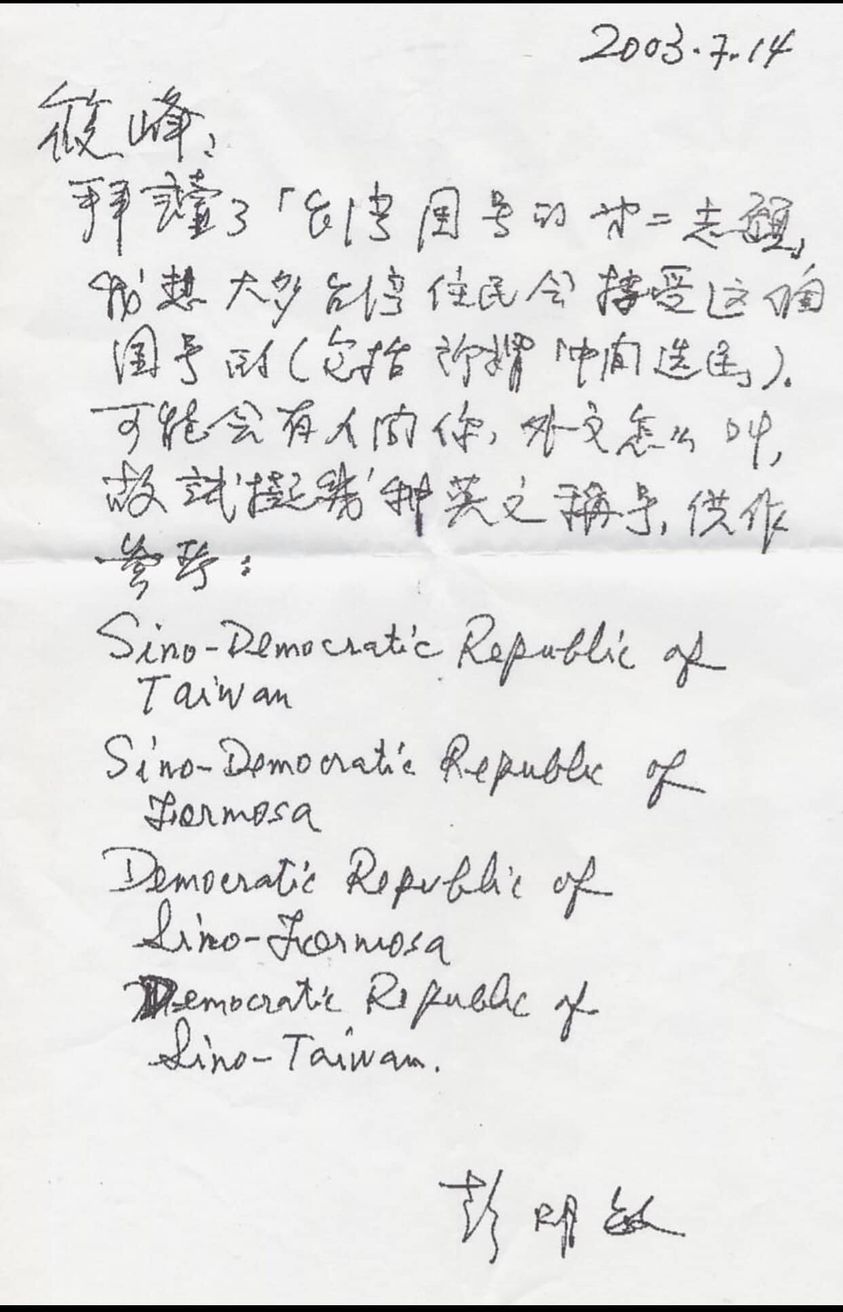 2003.7.14
筱峰:
拜讀了「台湾国号的第二志願」,
我想大多台湾住民会接受这個
国号的(包括所謂「中间选民」).
可能会有人问你,外文怎么叫,
故試擬幾种英文稱号,供作
參考:
Sino-Democratic Republic of
Taiwan
Sino-Democratic Republic of
Formosa
Democratic Republic of
Sino-Formosa
Democratic Republic of
Sino-Taiwan.
彭明敏